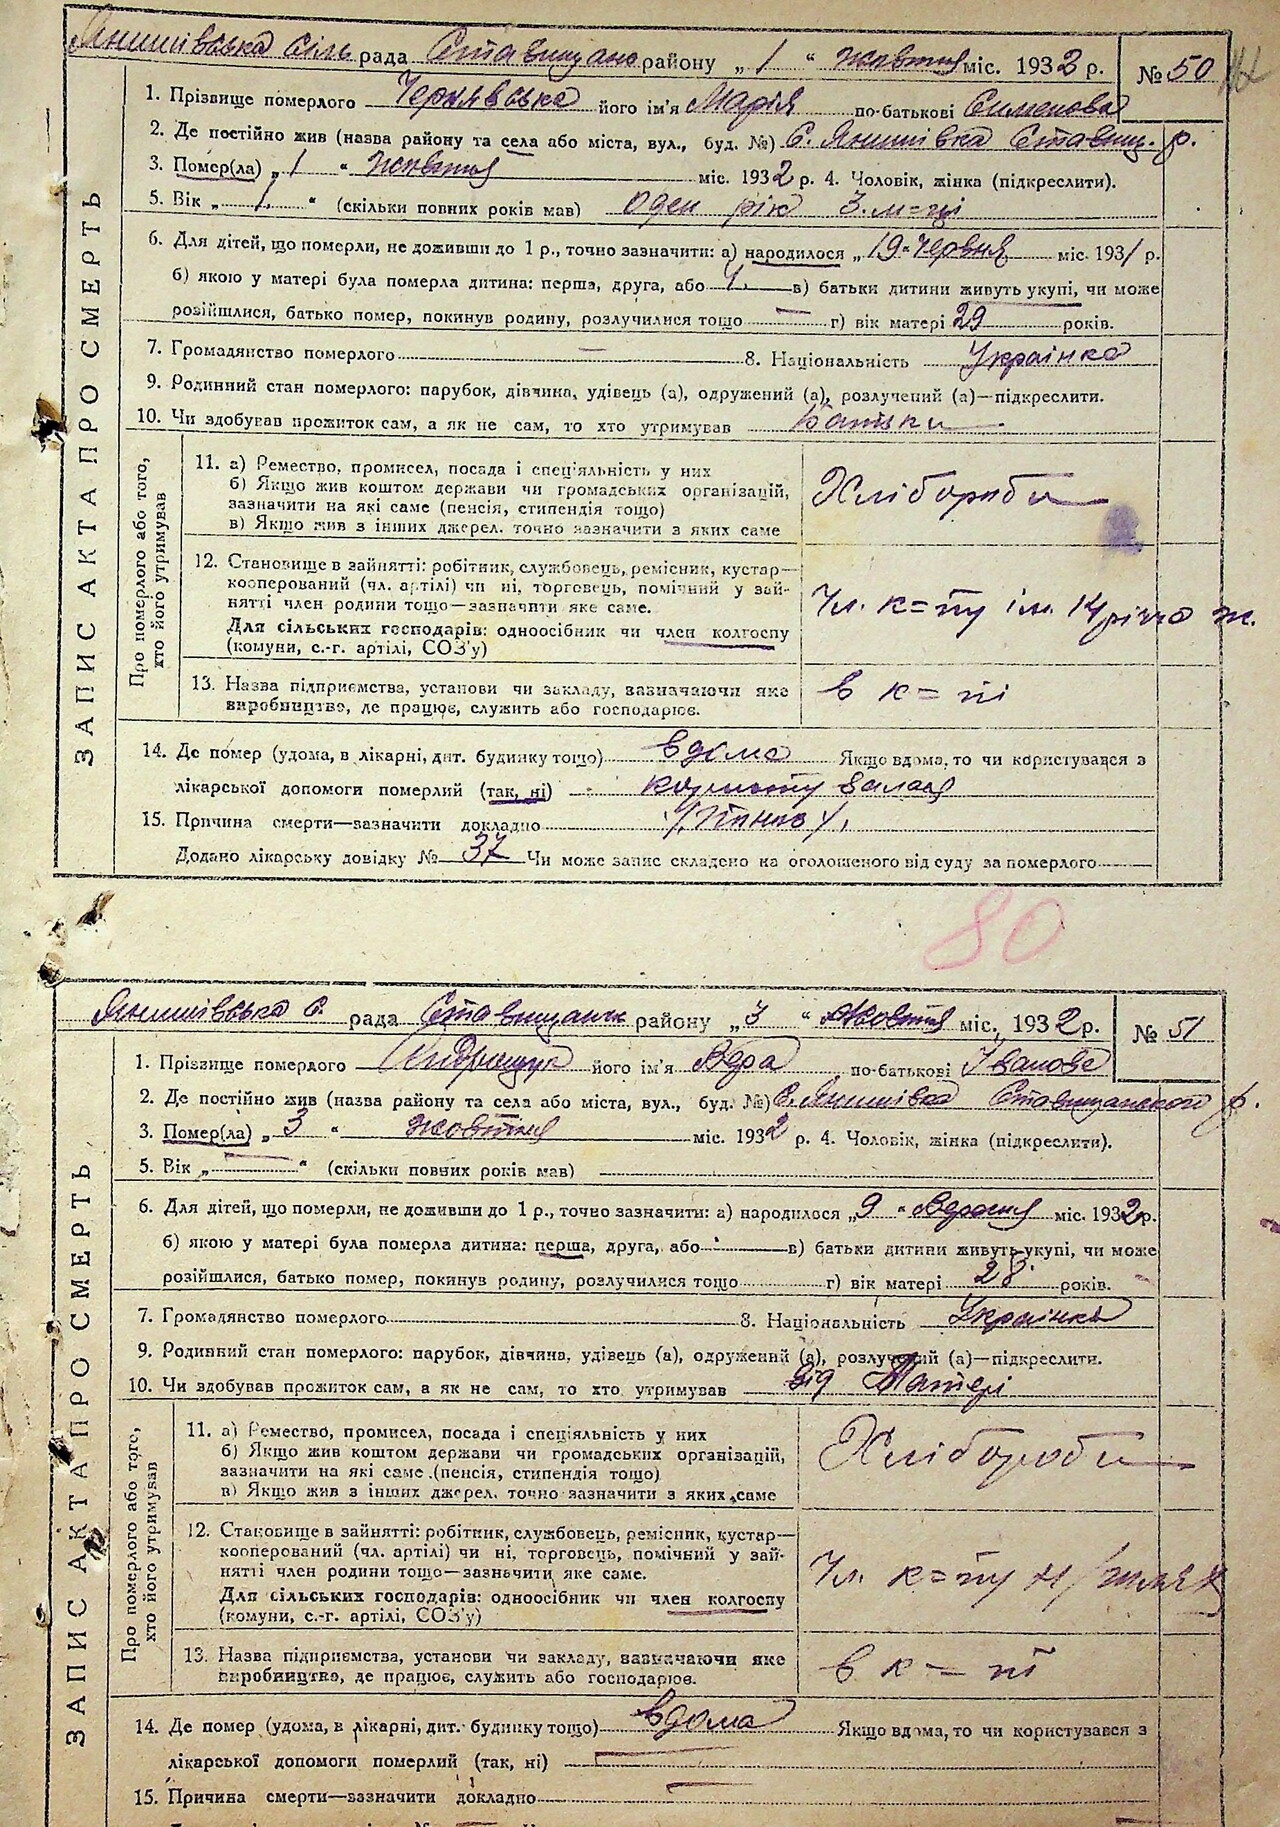 Янишівська сіль рада Ставищано району „ 1 “ жовтня міс. 1932 р. № 50
1. Прізвище померлого Чернявська його ім'я Марія по-батькові Сименова
2. Де постійно жив (назва району та села або міста, вул., буд. №) С. Янишівка Ставищ. р.
3. Помер(ла) „ 1 “ жовтня міс. 1932 р. 4. Чоловік, жінка (підкреслити).
5. Вік „ 1. “ (скільки повних років мав) оден рік 3. м=ці
6. Для дітей, що померли, не доживши до 1 р., точно зазначити: а) народилося „ 19 “ Червня міс. 1931 р.
б) якою у матері була померла дитина: перша, друга, або 4. в) батьки дитини живуть укупі, чи може
розійшлися, батько помер, покинув родину, розлучилися тощо — г) вік матері 29 років.
7. Громадянство померлого — 8. Національність Українка
9. Родинний стан померлого: парубок, дівчина, удівець (а), одружений (а), розлучений (а)—підкреслити.
10. Чи здобував прожиток сам, а як не сам, то хто утримував Батьки
11. а) Ремество, промисел, посада і спеціяльність у них
б) Якщо жив коштом держави чи громадських організацій,
зазначити на які саме (пенсія, стипендія тощо)
в) Якщо жив з інших джерел, точно зазначити з яких саме
Хлібороби
12. Становище в зайнятті: робітник, службовець, ремісник, кустар—
кооперований (чл. артілі) чи ні, торговець, помічний у зай-
нятті член родини тощо—зазначити яке саме.
Для сільських господарів: одноосібник чи член колгоспу
(комуни, с.-г. артілі, СОЗ'у)
Чл. к=пу ім. 14 річчя ж.
13. Назва підприємства, установи чи закладу, зазначаючи яке
виробництво, де працює, служить або господарює.
в к=пі
Про померлого або того,
хто його утримував
14. Де помер (удома, в лікарні, дит. будинку тощо) вдома Якщо вдома, то чи користувався з
лікарської допомоги померлий (так, ні)
15. Причина смерти—зазначити докладно
Додано лікарську довідку № 37 Чи може запис складено на оголошеного від суду за померлого
ЗАПИС АКТА ПРО СМЕРТЬ
80
Янишівська С. рада Ставищанськ району „ 3 “ Жовтня міс. 1932 р. № 51
1. Прізвище померлого Андрощук його ім'я Вера по-батькові Іванове
2. Де постійно жив (назва району та села або міста, вул., буд. №) С. Янишівка Ставищанского р.
3. Помер(ла) „ 3 “ жовтня міс. 1932 р. 4. Чоловік, жінка (підкреслити).
5. Вік „ “ (скільки повних років мав)
6. Для дітей, що померли, не доживши до 1 р., точно зазначити: а) народилося „ 9 “ Вересня міс. 1932 р.
б) якою у матері була померла дитина: перша, друга, або в) батьки дитини живуть укупі, чи може
розійшлися, батько помер, покинув родину, розлучилися тощо г) вік матері 28 років.
7. Громадянство померлого 8. Національність Українка
9. Родинний стан померлого: парубок, дівчина, удівець (а), одружений (а), розлучений (а)—підкреслити.
10. Чи здобував прожиток сам, а як не сам, то хто утримував від Матері
11. а) Ремество, промисел, посада і спеціяльність у них
б) Якщо жив коштом держави чи громадських організацій,
зазначити на які саме (пенсія, стипендія тощо)
в) Якщо жив з інших джерел, точно зазначити з яких саме
Хлібороби
12. Становище в зайнятті: робітник, службовець, ремісник, кустар—
кооперований (чл. артілі) чи ні, торговець, помічний у зай-
нятті член родини тощо—зазначити яке саме.
Для сільських господарів: одноосібник чи член колгоспу
(комуни, с.-г. артілі, СОЗ'у)
Чл. к=пу
13. Назва підприємства, установи чи закладу, зазначаючи яке
виробництво, де працює, служить або господарює.
в к=пі
Про померлого або того,
хто його утримував
14. Де помер (удома, в лікарні, дит. будинку тощо) вдома Якщо вдома, то чи користувався з
лікарської допомоги померлий (так, ні)
15. Причина смерти—зазначити докладно
ЗАПИС АКТА ПРО СМЕРТЬ